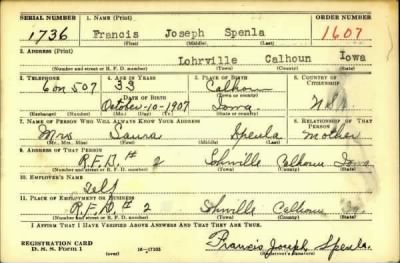 SERIAL NUMBER 1. NAME (Print) ORDER NUMBER
1736 Francis Joseph Spenla 1607
(First) (Middle) (Last)
2. ADDRESS (Print)
Lohrville Calhoun Iowa
(Number and street or R. F. D. number) (Town) (County) (State)
3. TELEPHONE 4. AGE IN YEARS 5. PLACE OF BIRTH 6. COUNTRY OF CITIZENSHIP
6 on 507 33 Calhoun
DATE OF BIRTH (Town or county)
October-10-1907 Iowa U.S.A.
(Exchange) (Number) (Mo.) (Day) (Yr.) (State or country)
7. NAME OF PERSON WHO WILL ALWAYS KNOW YOUR ADDRESS 8. RELATIONSHIP OF THAT PERSON
Mrs Laura Spenla Mother
(Mr., Mrs., Miss) (First) (Middle) (Last)
9. ADDRESS OF THAT PERSON
R.F.D. # 2 Lohrville Calhoun Iowa
(Number and street or R. F. D. number) (Town) (County) (State)
10. EMPLOYER'S NAME
Self
11. PLACE OF EMPLOYMENT OR BUSINESS
R.F.D. # 2 Lohrville Calhoun Ia.
(Number and street or R. F. D. number) (Town) (County) (State)
I AFFIRM THAT I HAVE VERIFIED ABOVE ANSWERS AND THAT THEY ARE TRUE.
REGISTRATION CARD
D. S. S. FORM 1 (over) 16—17105 Francis Joseph Spenla.
(Registrant's signature)